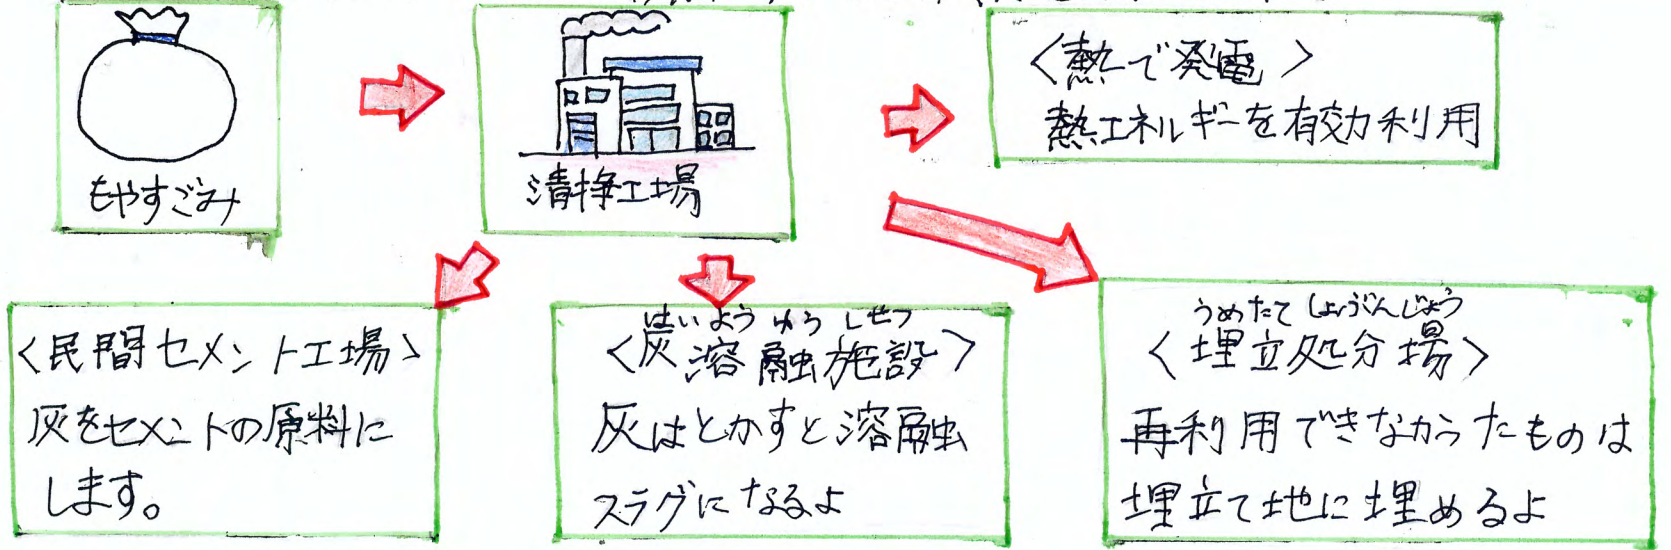 もやすごみ
清掃工場
<熱で発電>
熱エネルギーを有効利用
<民間セメント工場>
灰をセメントの原料に
します。
はいようゆうしせつ
<灰溶融施設>
灰はとかすと溶融
スラグになるよ
うめたてしょぶんじょう
<埋立処分場>
再利用できなかったものは
埋立て地に埋めるよ